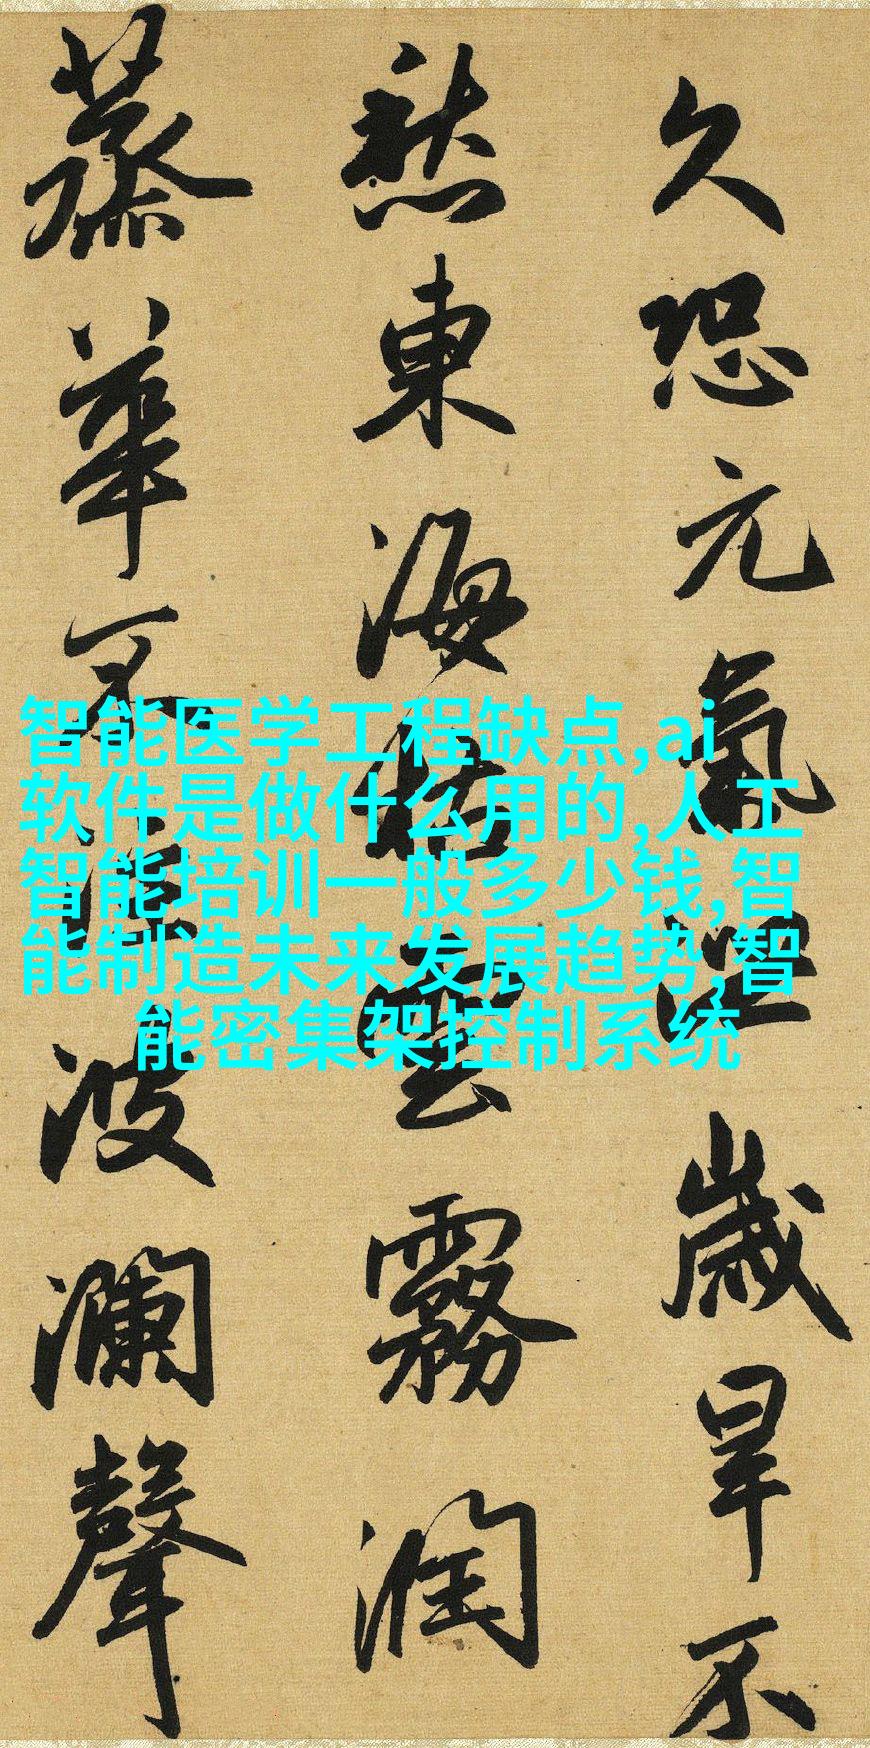 久恐元氣泄歲旱不
愁東海枯雲霧潤
蒸華不注波瀾聲
智能医学工程缺点,ai
软件是做什么用的,人工
智能培训一般多少钱,智
能制造未来发展趋势,智
能密集架控制系统